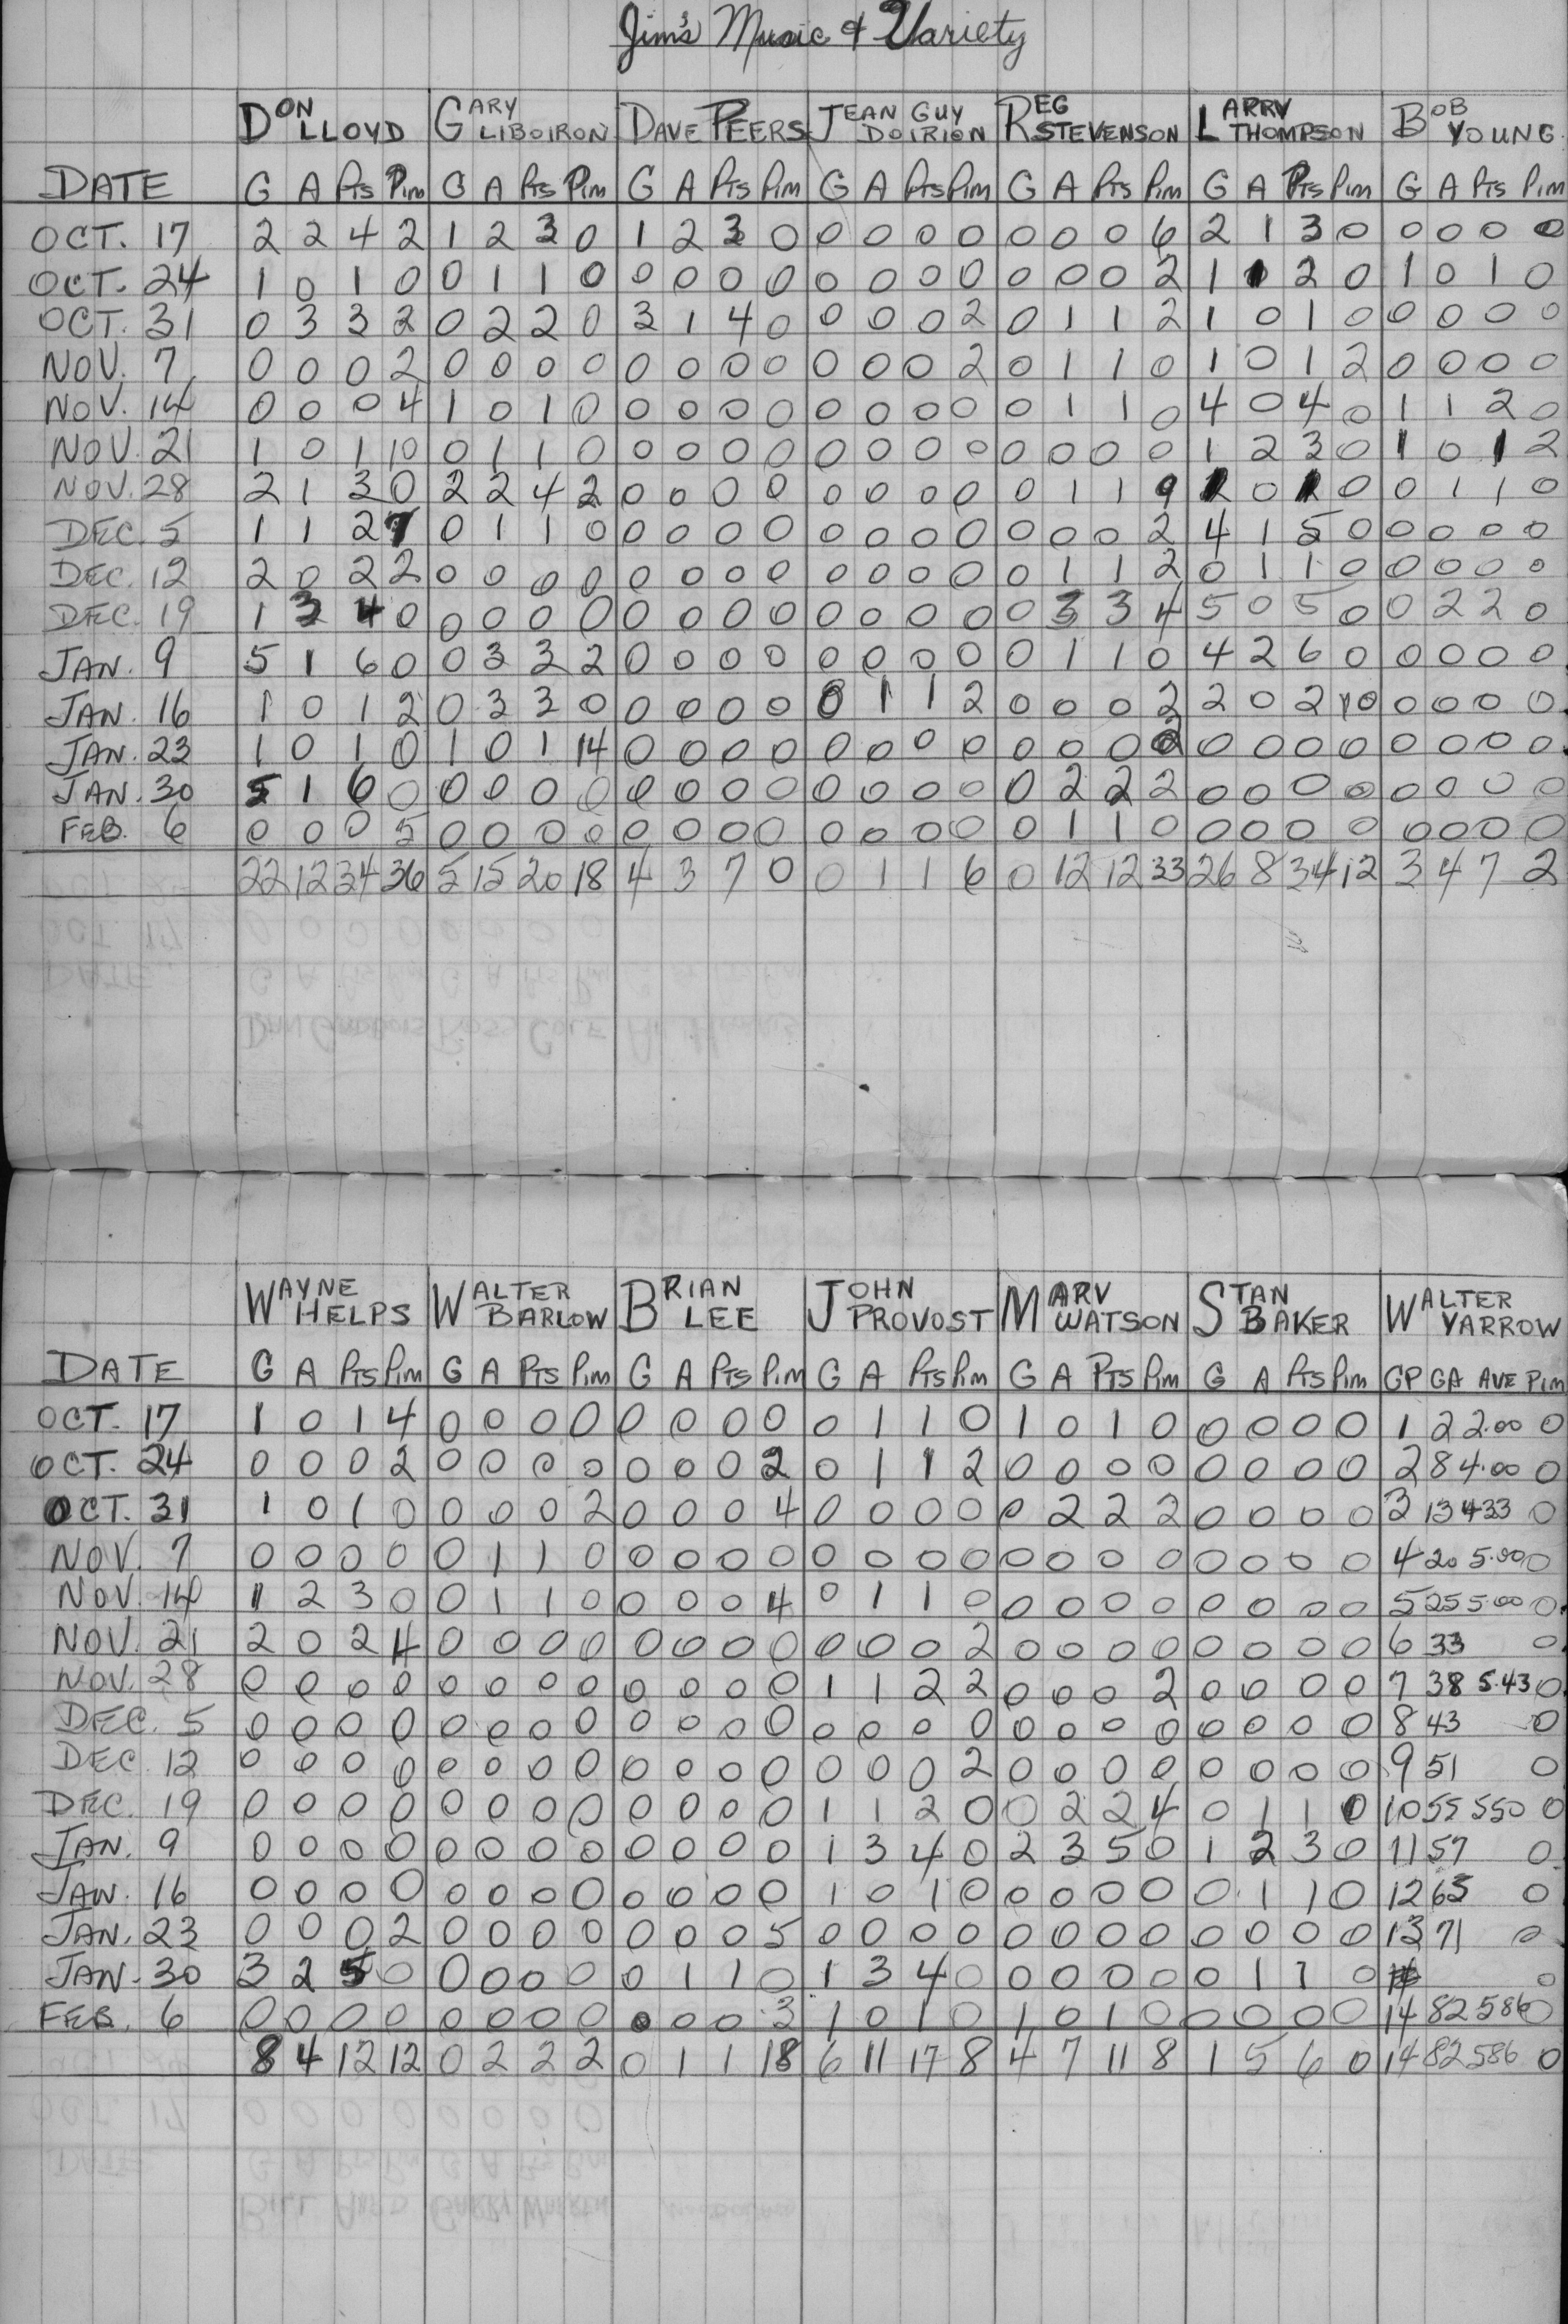 Jim's Music & Variety
DON LLOYD GARY LIBOIRON DAVE PEERS JEAN GUY DOIRION REG STEVENSON LARRY THOMPSON BOB YOUNG
DATE G A Pts Pim G A Pts Pim G A Pts Pim G A Pts Pim G A Pts Pim G A Pts Pim G A Pts Pim
OCT. 17 2 2 4 2 1 2 3 0 1 2 3 0 0 0 0 0 0 0 0 6 2 1 3 0 0 0 0 0
OCT. 24 1 0 1 0 0 1 1 0 0 0 0 0 0 0 0 0 0 0 0 2 1 1 2 0 1 0 1 0
OCT. 31 0 3 3 2 0 2 2 0 3 1 4 0 0 0 0 2 0 1 1 2 1 0 1 0 0 0 0 0
NOV. 7 0 0 0 2 0 0 0 0 0 0 0 0 0 0 0 2 0 1 1 0 1 0 1 2 0 0 0 0
NOV. 14 0 0 0 4 1 0 1 0 0 0 0 0 0 0 0 0 0 1 1 0 4 0 4 0 1 1 2 0
NOV. 21 1 0 1 10 0 1 1 0 0 0 0 0 0 0 0 0 0 0 0 0 1 2 3 0 1 0 1 2
NOV. 28 2 1 3 0 2 2 4 2 0 0 0 0 0 0 0 0 0 1 1 9 1 0 1 0 0 1 1 0
DEC. 5 1 1 2 7 0 1 1 0 0 0 0 0 0 0 0 0 0 0 0 2 4 1 5 0 0 0 0 0
DEC. 12 2 0 2 2 0 0 0 0 0 0 0 0 0 0 0 0 0 1 1 2 0 1 1 0 0 0 0 0
DEC. 19 1 3 4 0 0 0 0 0 0 0 0 0 0 0 0 0 0 3 3 4 5 0 5 0 0 2 2 0
JAN. 9 5 1 6 0 0 3 3 2 0 0 0 0 0 0 0 0 0 1 1 0 4 2 6 0 0 0 0 0
JAN. 16 1 0 1 2 0 3 3 0 0 0 0 0 0 1 1 2 0 0 0 2 2 0 2 10 0 0 0 0
JAN. 23 1 0 1 0 1 0 1 14 0 0 0 0 0 0 0 0 0 0 0 2 0 0 0 0 0 0 0 0
JAN. 30 5 1 6 0 0 0 0 0 0 0 0 0 0 0 0 0 0 2 2 2 0 0 0 0 0 0 0 0
FEB. 6 0 0 0 5 0 0 0 0 0 0 0 0 0 0 0 0 0 1 1 0 0 0 0 0 0 0 0 0
22 12 34 36 5 15 20 18 4 3 7 0 0 1 1 6 0 12 12 33 26 8 34 12 3 4 7 2
WAYNE HELPS WALTER BARLOW BRIAN LEE JOHN PROVOST MARV WATSON STAN BAKER WALTER YARROW
DATE G A Pts Pim G A Pts Pim G A Pts Pim G A Pts Pim G A Pts Pim G A Pts Pim GP GA AVE Pim
OCT. 17 1 0 1 4 0 0 0 0 0 0 0 0 0 1 1 0 1 0 1 0 0 0 0 0 1 2 2.00 0
OCT. 24 0 0 0 2 0 0 0 0 0 0 0 2 0 1 1 2 0 0 0 0 0 0 0 0 2 8 4.00 0
OCT. 31 1 0 1 0 0 0 0 2 0 0 0 4 0 0 0 0 0 2 2 2 0 0 0 0 3 13 433 0
NOV. 7 0 0 0 0 0 1 1 0 0 0 0 0 0 0 0 0 0 0 0 0 0 0 0 0 4 20 5.00 0
NOV. 14 1 2 3 0 0 1 1 0 0 0 0 4 0 1 1 0 0 0 0 0 0 0 0 0 5 25 5.00 0
NOV. 21 2 0 2 4 0 0 0 0 0 0 0 0 0 0 0 2 0 0 0 0 0 0 0 0 6 33 0
NOV. 28 0 0 0 0 0 0 0 0 0 0 0 0 1 1 2 2 0 0 0 2 0 0 0 0 7 38 5.43 0
DEC. 5 0 0 0 0 0 0 0 0 0 0 0 0 0 0 0 0 0 0 0 0 0 0 0 0 8 43 0
DEC. 12 0 0 0 0 0 0 0 0 0 0 0 0 0 0 0 2 0 0 0 0 0 0 0 0 9 51 0
DEC. 19 0 0 0 0 0 0 0 0 0 0 0 0 1 1 2 0 0 2 2 4 0 1 1 0 10 55 550 0
JAN. 9 0 0 0 0 0 0 0 0 0 0 0 0 1 3 4 0 2 3 5 0 1 2 3 0 11 57 0
JAN. 16 0 0 0 0 0 0 0 0 0 0 0 0 1 0 1 0 0 0 0 0 0 1 1 0 12 63 0
JAN. 23 0 0 0 2 0 0 0 0 0 0 0 5 0 0 0 0 0 0 0 0 0 0 0 0 13 71 0
JAN. 30 3 2 5 0 0 0 0 0 0 1 1 0 1 3 4 0 0 0 0 0 0 1 1 0 0
FEB. 6 0 0 0 0 0 0 0 0 0 0 0 3 1 0 1 0 1 0 1 0 0 0 0 0 14 82 586 0
8 4 12 12 0 2 2 2 0 1 1 18 6 11 17 8 4 7 11 8 1 5 6 0 14 82 586 0